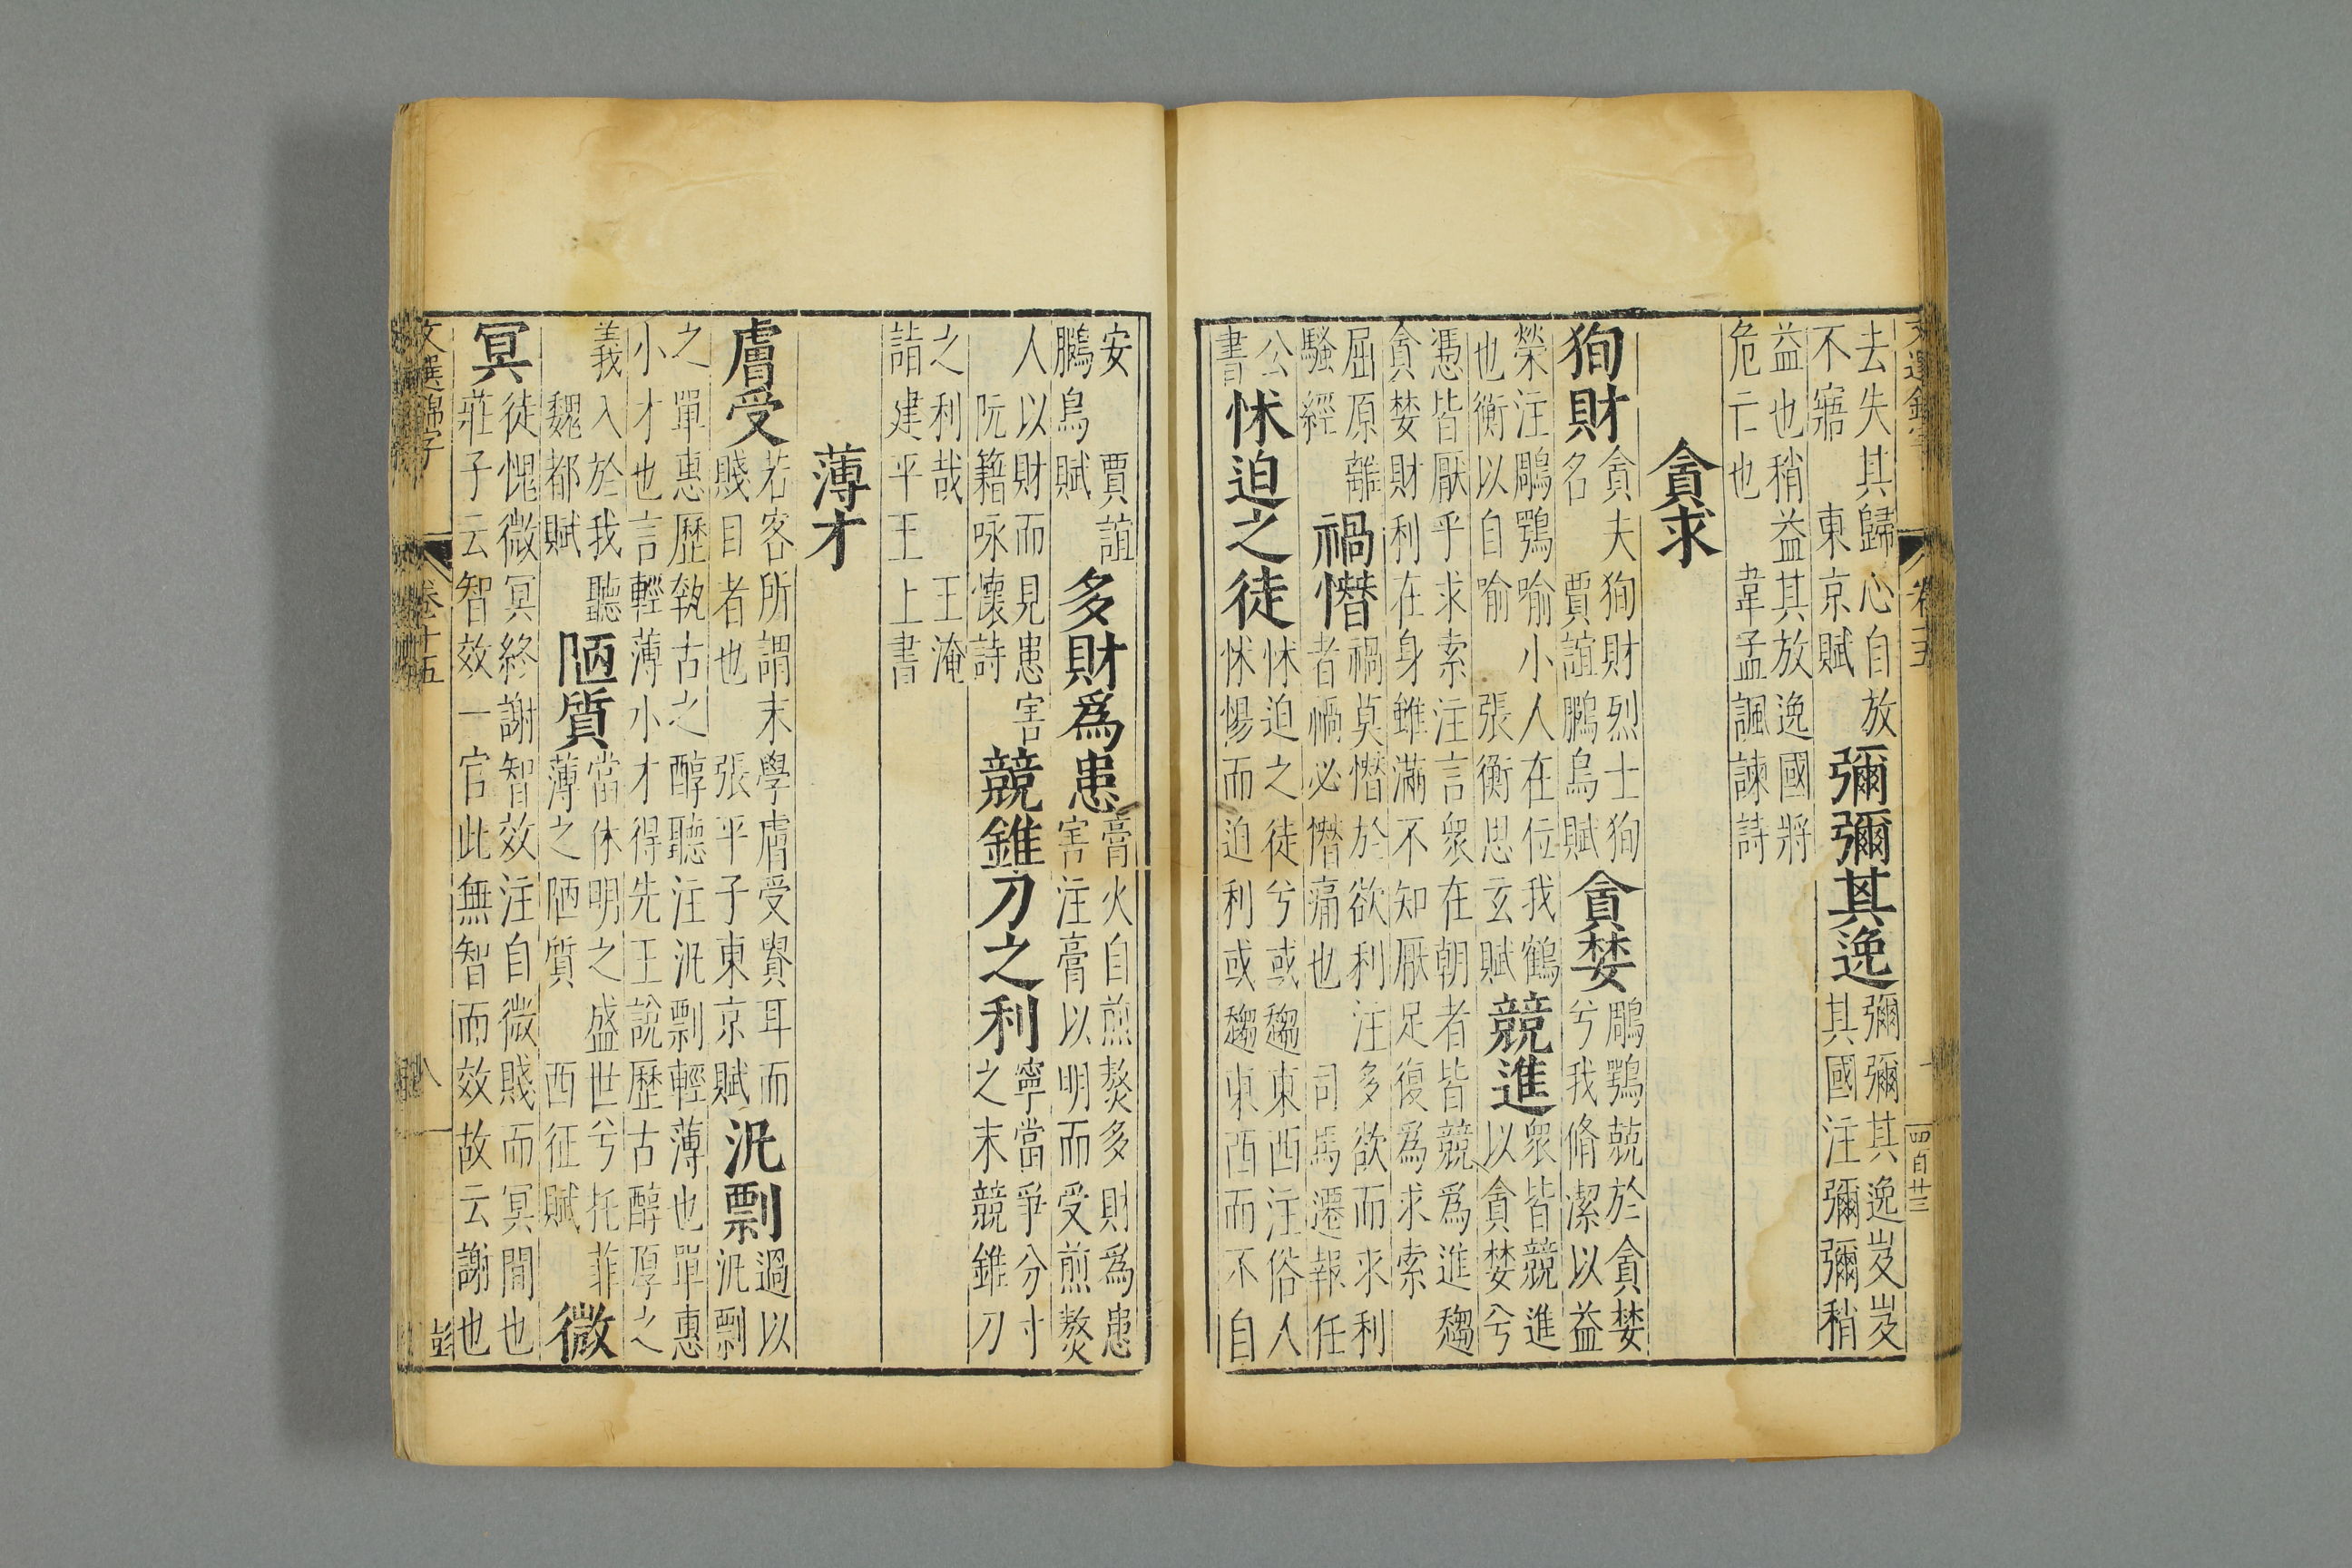 去失其歸心自放
不寤 東京賦
彌彌其逸
彌彌其逸岌岌
其國注彌彌稍
益也稍益其放逸國將
危亡也 韋孟諷諫詩
貪求
狥財
貪夫狥財烈士狥
名 賈誼鵩鳥賦
貪婪
鵰鶚競於貪婪
兮我脩潔以益
榮注鵰鶚喻小人在位我鶴
也衡以自喻 張衡思玄賦
競進
衆皆競進
以貪婪兮
憑皆厭乎求索注言衆在朝者皆競爲進趨
貪婪財利在身雖滿不知厭足復爲求索
屈原離
騷經
禍憯
禍莫憯於欲利注多欲而求利
者禍必憯痛也 司馬遷報任
公
書
怵迫之徒
怵迫之徒兮或趨東西注俗人
怵惕而迫利或趨東西而不自
安 賈誼
鵩鳥賦
多財爲患
膏火自煎熬多財爲患
害注膏以明而受煎熬
人以財而見患害
阮籍咏懷詩
競錐刀之利
寧當爭分寸
之末競錐刀
之利哉 王淹
詣建平王上書
薄才
膚受
若客所謂末學膚受貴耳而
賤目者也 張平子東京賦
汎剽
過以
汎剽
之單惠歷執古之醇聽注汎剽輕薄也單惠
小才也言輕薄小才得先王說歷古醇厚之
義入於我聽
魏都賦
陋質
當休明之盛世兮托菲
薄之陋質 西征賦
微
冥
徒愧微冥終謝智效注自微賤而冥闇也
莊子云智效一官此無智而效故云謝也
文選錦字
卷十五
八
彭
四百廿三